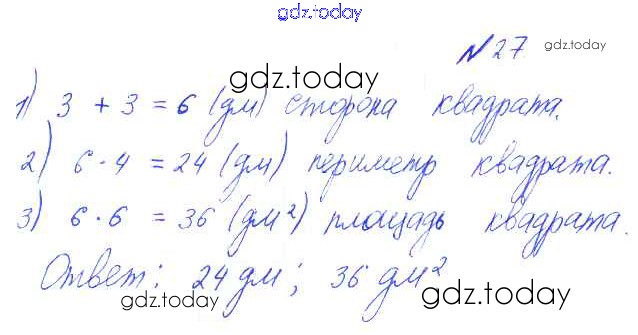 gdz.today
№ 27. gdz.today
gdz.today
1) 3 + 3 = 6 (дм) сторона квадрата.
2) 6 · 4 = 24 (дм) периметр квадрата.
3) 6 · 6 = 36 (дм²) площадь квадрата.
Ответ: 24 дм; 36 дм²
gdz.today gdz.today